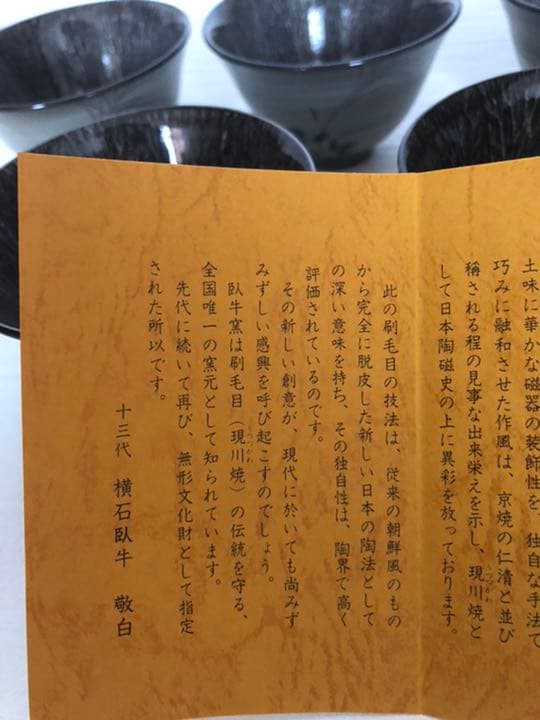 土味に華かな磁器の装飾性を、独自な手法で
巧みに融和させた作風は、京焼の仁清と並び
稱される程の見事な出来栄えを示し、現川焼と
して日本陶磁史の上に異彩を放っております。
此の刷毛目の技法は、従来の朝鮮風のもの
から完全に脱皮した新しい日本の陶法として
の深い意味を持ち、その独自性は、陶界で高く
評価されているのです。
その新しい創意が、現代に於いても尚みず
みずしい感興を呼び起こすのでしょう。
臥牛窯は刷毛目（現川焼）の伝統を守る、
全国唯一の窯元として知られています。
先代に続いて再び、無形文化財として指定
された所以です。
十三代 横石臥牛 敬白